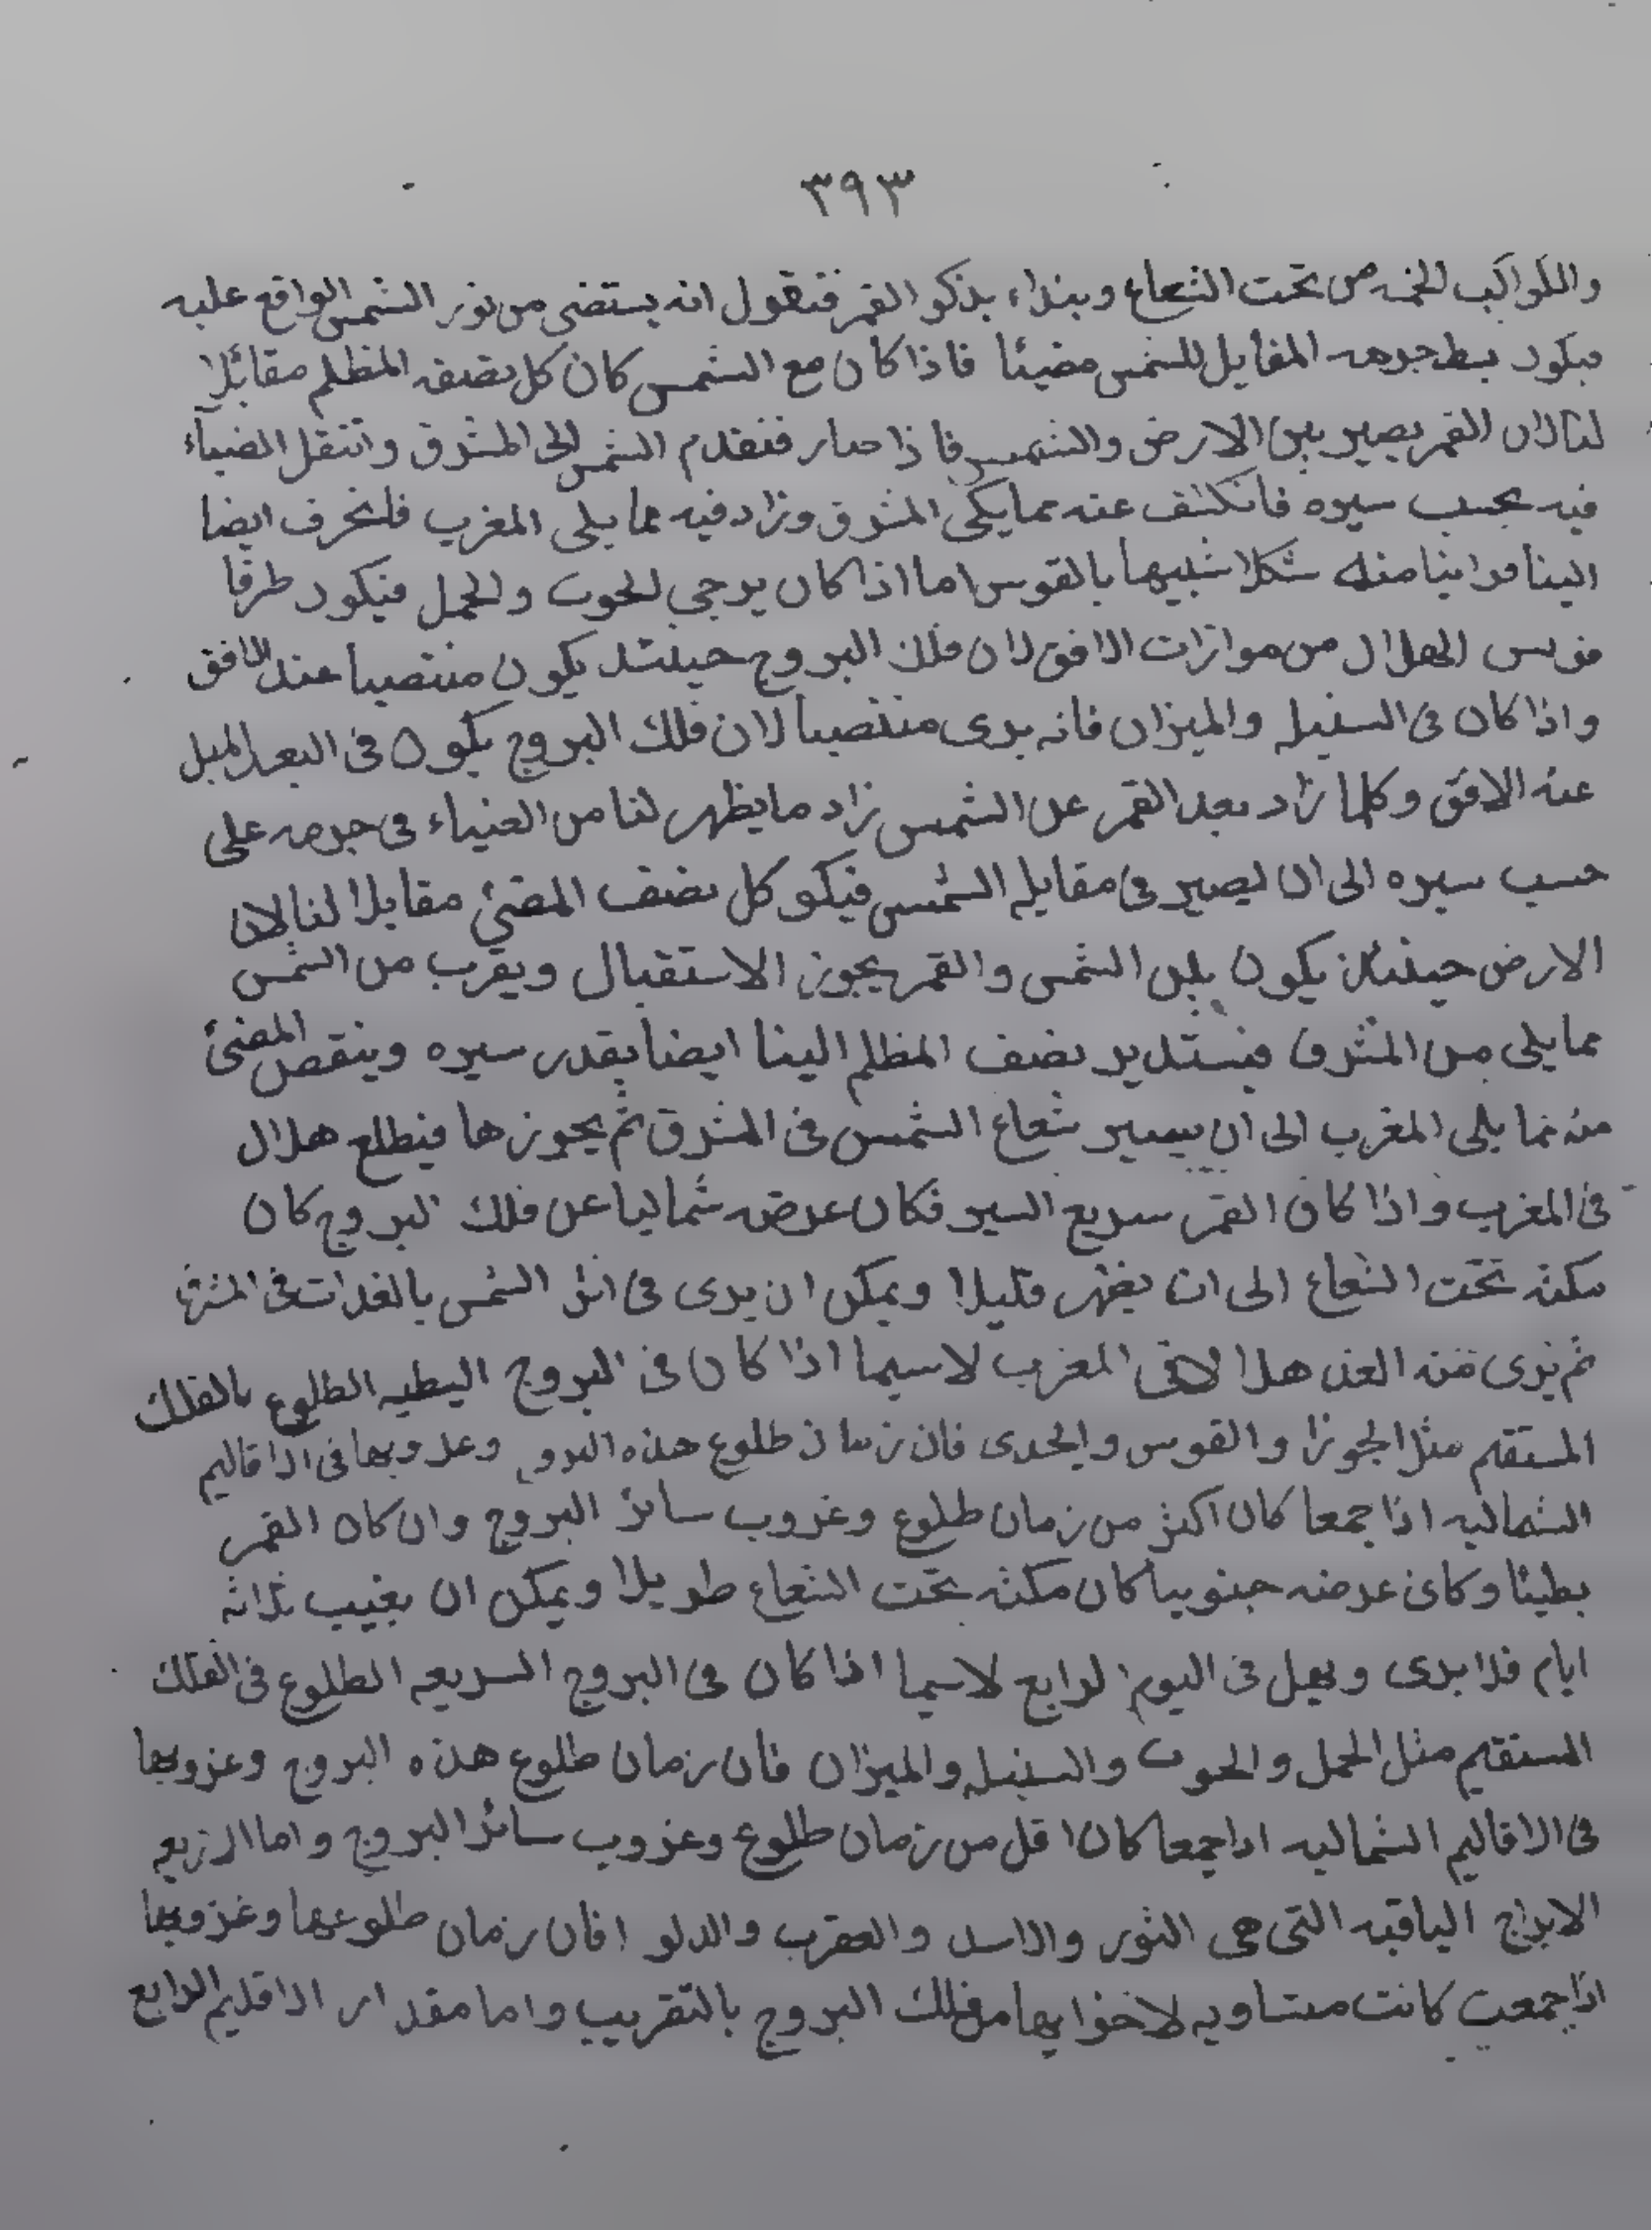 ٣٩٣
والكواكب الخمسه من تحت الشعاع ونبداء بذكر القمر فنقول انه يستضى من نور الشمس الواقع عليه
فيكون بسط جرمه المقابل للشمس مضيئا فاذا كان مع الشمس كان كل نصفه المظلم مقابلا
لنا لان القمر يصير بين الارض والشمس فاذا صار فتقدم الشمس الى المشرق وانتقل الضياء
فيه بحسب سيره فانكشف عنه مما يلى المشرق وزاد فيه مما يلى المغرب فانحرف ايضا
الينا فراينا منه شكلا شبيها بالقوس اما اذا كان برجي الحوت والحمل فيكون طرفا
قوس الهلال من موازات الافق لان فلك البروج حينئذ يكون منتصبا عند الافق
واذا كان فى السنبله والميزان فانه يرى منتصبا لان فلك البروج يكون فى البعد الميل
عنه الافق وكلما زاد بعد القمر عن الشمس زاد ما يظهر لنا من الضياء فى جرمه على
حسب سيره الى ان يصير فى مقابله الشمس فيكو كل نصف المضئ مقابلا لنا لان
الارض حينئذ يكون بين الشمس والقمر يجوز الاستقبال ويقرب من الشمس
مما يلى من المشرق فيستدير نصف المظلم الينا ايضا بقدر سيره وينقص المضئ
منه مما يلى المغرب الى ان يسير شعاع الشمس فى المشرق ثم يجوزها فيطلع هلال
فى المغرب واذا كان القمر سريع السير فكان عرضه شماليا عن فلك البروج كان
مكثه تحت الشعاع الى ان يظهر قليلا ويمكن ان يرى فى اثر الشمس بالغدات فى المشرق
ثم يرى منه الغد هلالا فى المغرب لاسيما اذا كان فى البروج البطيه الطلوع بالفلك
المستقيم مثل الجوزا والقوس والجدى فان زمان طلوع هذه البروج وغروبها فى الاقاليم
الشماليه اذا جمعا كان اكثر من زمان طلوع وغروب سائر البروج وان كان القمر
بطيئا وكان عرضه جنوبيا كان مكثه تحت الشعاع طويلا ويمكن ان يغيب ثلاثة
ايام فلا يرى ويهل فى اليوم الرابع لاسيما اذا كان فى البروج السريعه الطلوع فى الفلك
المستقيم مثل الحمل والحوت والسنبله والميزان فان زمان طلوع هذه البروج وغروبها
فى الاقاليم الشماليه اذا جمعا كان اقل من زمان طلوع وغروب سائر البروج واما الاربعه
الابراج الباقيه التى هى الثور والاسد والعقرب والدلو فان زمان طلوعها وغروبها
اذا جمعت كانت متساويه لاخوايها من فلك البروج بالتقريب واما مقدار الاقليم الرابع